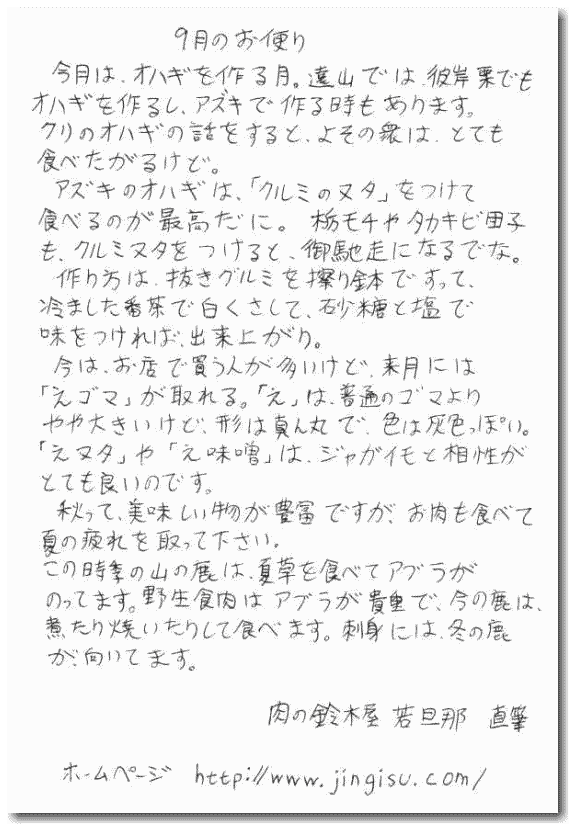 9月のお便り
今月は、オハギを作る月。遠山では、彼岸栗でも
オハギを作るし、アズキで作る時もあります。
クリのオハギの話をすると、よその衆は、とても
食べたがるけど。
アズキのオハギは、「クルミのヌタ」をつけて
食べるのが最高だに。 栃モチやタカキビ団子
も、クルミヌタをつけると、御馳走になるでな。
作り方は、抜きグルミを擦り鉢ですって、
冷ました番茶で白くさして、砂糖と塩で
味をつければ、出来上がり。
今は、お店で買う人が多いけど、来月には
「えゴマ」が取れる。「え」は、普通のゴマより
やや大きいけど、形は真ん丸で、色は灰色っぽい。
「えヌタ」や「え味噌」は、ジャガイモと相性が
とても良いのです。
秋って、美味しい物が豊富ですが、お肉も食べて
夏の疲れを取って下さい。
この時季の山の鹿は、夏草を食べてアブラが
のってます。野生食肉はアブラが貴重で、今の鹿は、
煮たり焼いたりして食べます。刺身には、冬の鹿
が、向いてます。
肉の鈴木屋 若旦那 直筆
ホームページ http://www.jingisu.com/